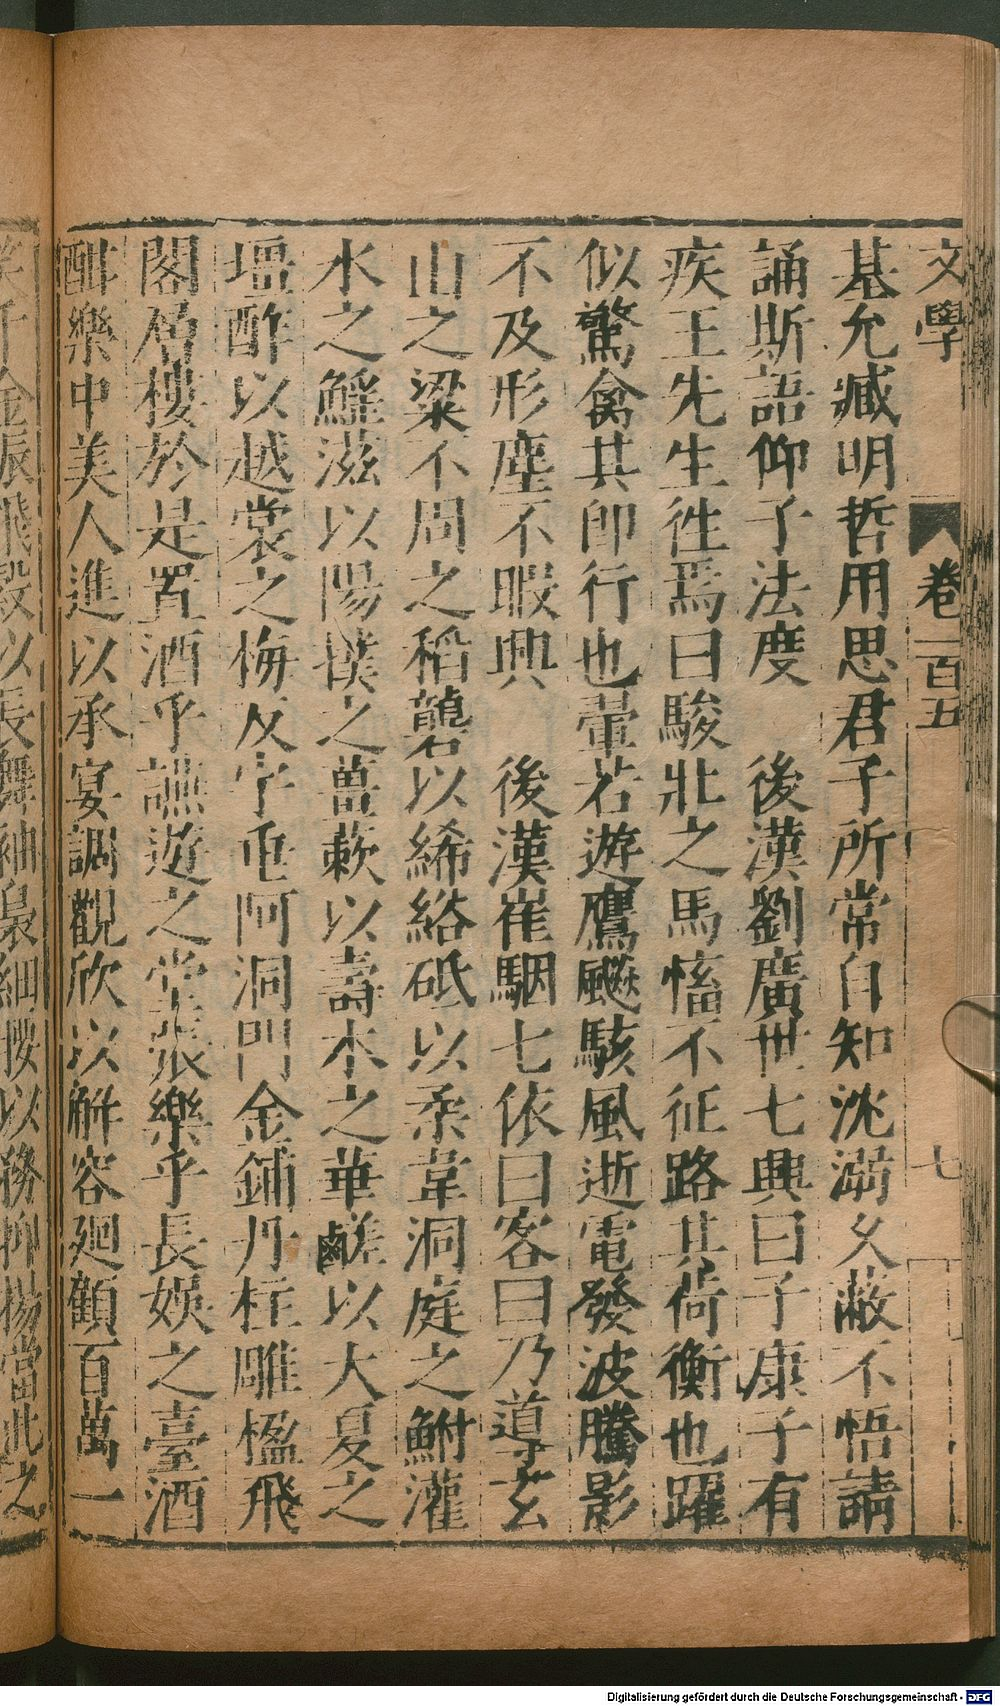 文學 卷一百五 七
基允臧明哲用思君子所常自知沈溺久蔽不悟請
誦斯語仰子法度 後漢劉廣世七興曰子康子有
疾王先生往焉曰駿壯之馬慉不征路其荷衡也躍
似驚禽其即行也暈若遊鷹飈駭風逝電發波騰影
不及形塵不暇興 後漢崔駰七依曰客曰乃導玄
山之梁不周之稻礱以絺綌砥以柔韋洞庭之鮒灌
水之鰩滋以陽撲之薑蔌以壽木之華鹺以大夏之
壃酢以越裳之梅反宇垂阿洞門金鋪丹柱雕楹飛
閣層樓於是置酒乎讌遊之堂張樂乎長娛之臺酒
酣樂中美人進以承宴調觀欣以解容廻顧百萬一
笑千金振飛縠以長舞袖裊細腰以務抑揚當此之
Digitalisierung gefördert durch die Deutsche Forschungsgemeinschaft - DFG